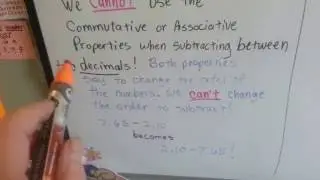 We Cannot Use the
Commutative or Associative
Properties when subtracting between
decimals! Both properties
say to change the order of
the numbers. We can't change
the order to subtract!
7.65 - 2.10
becomes
2.10 - 7.65!